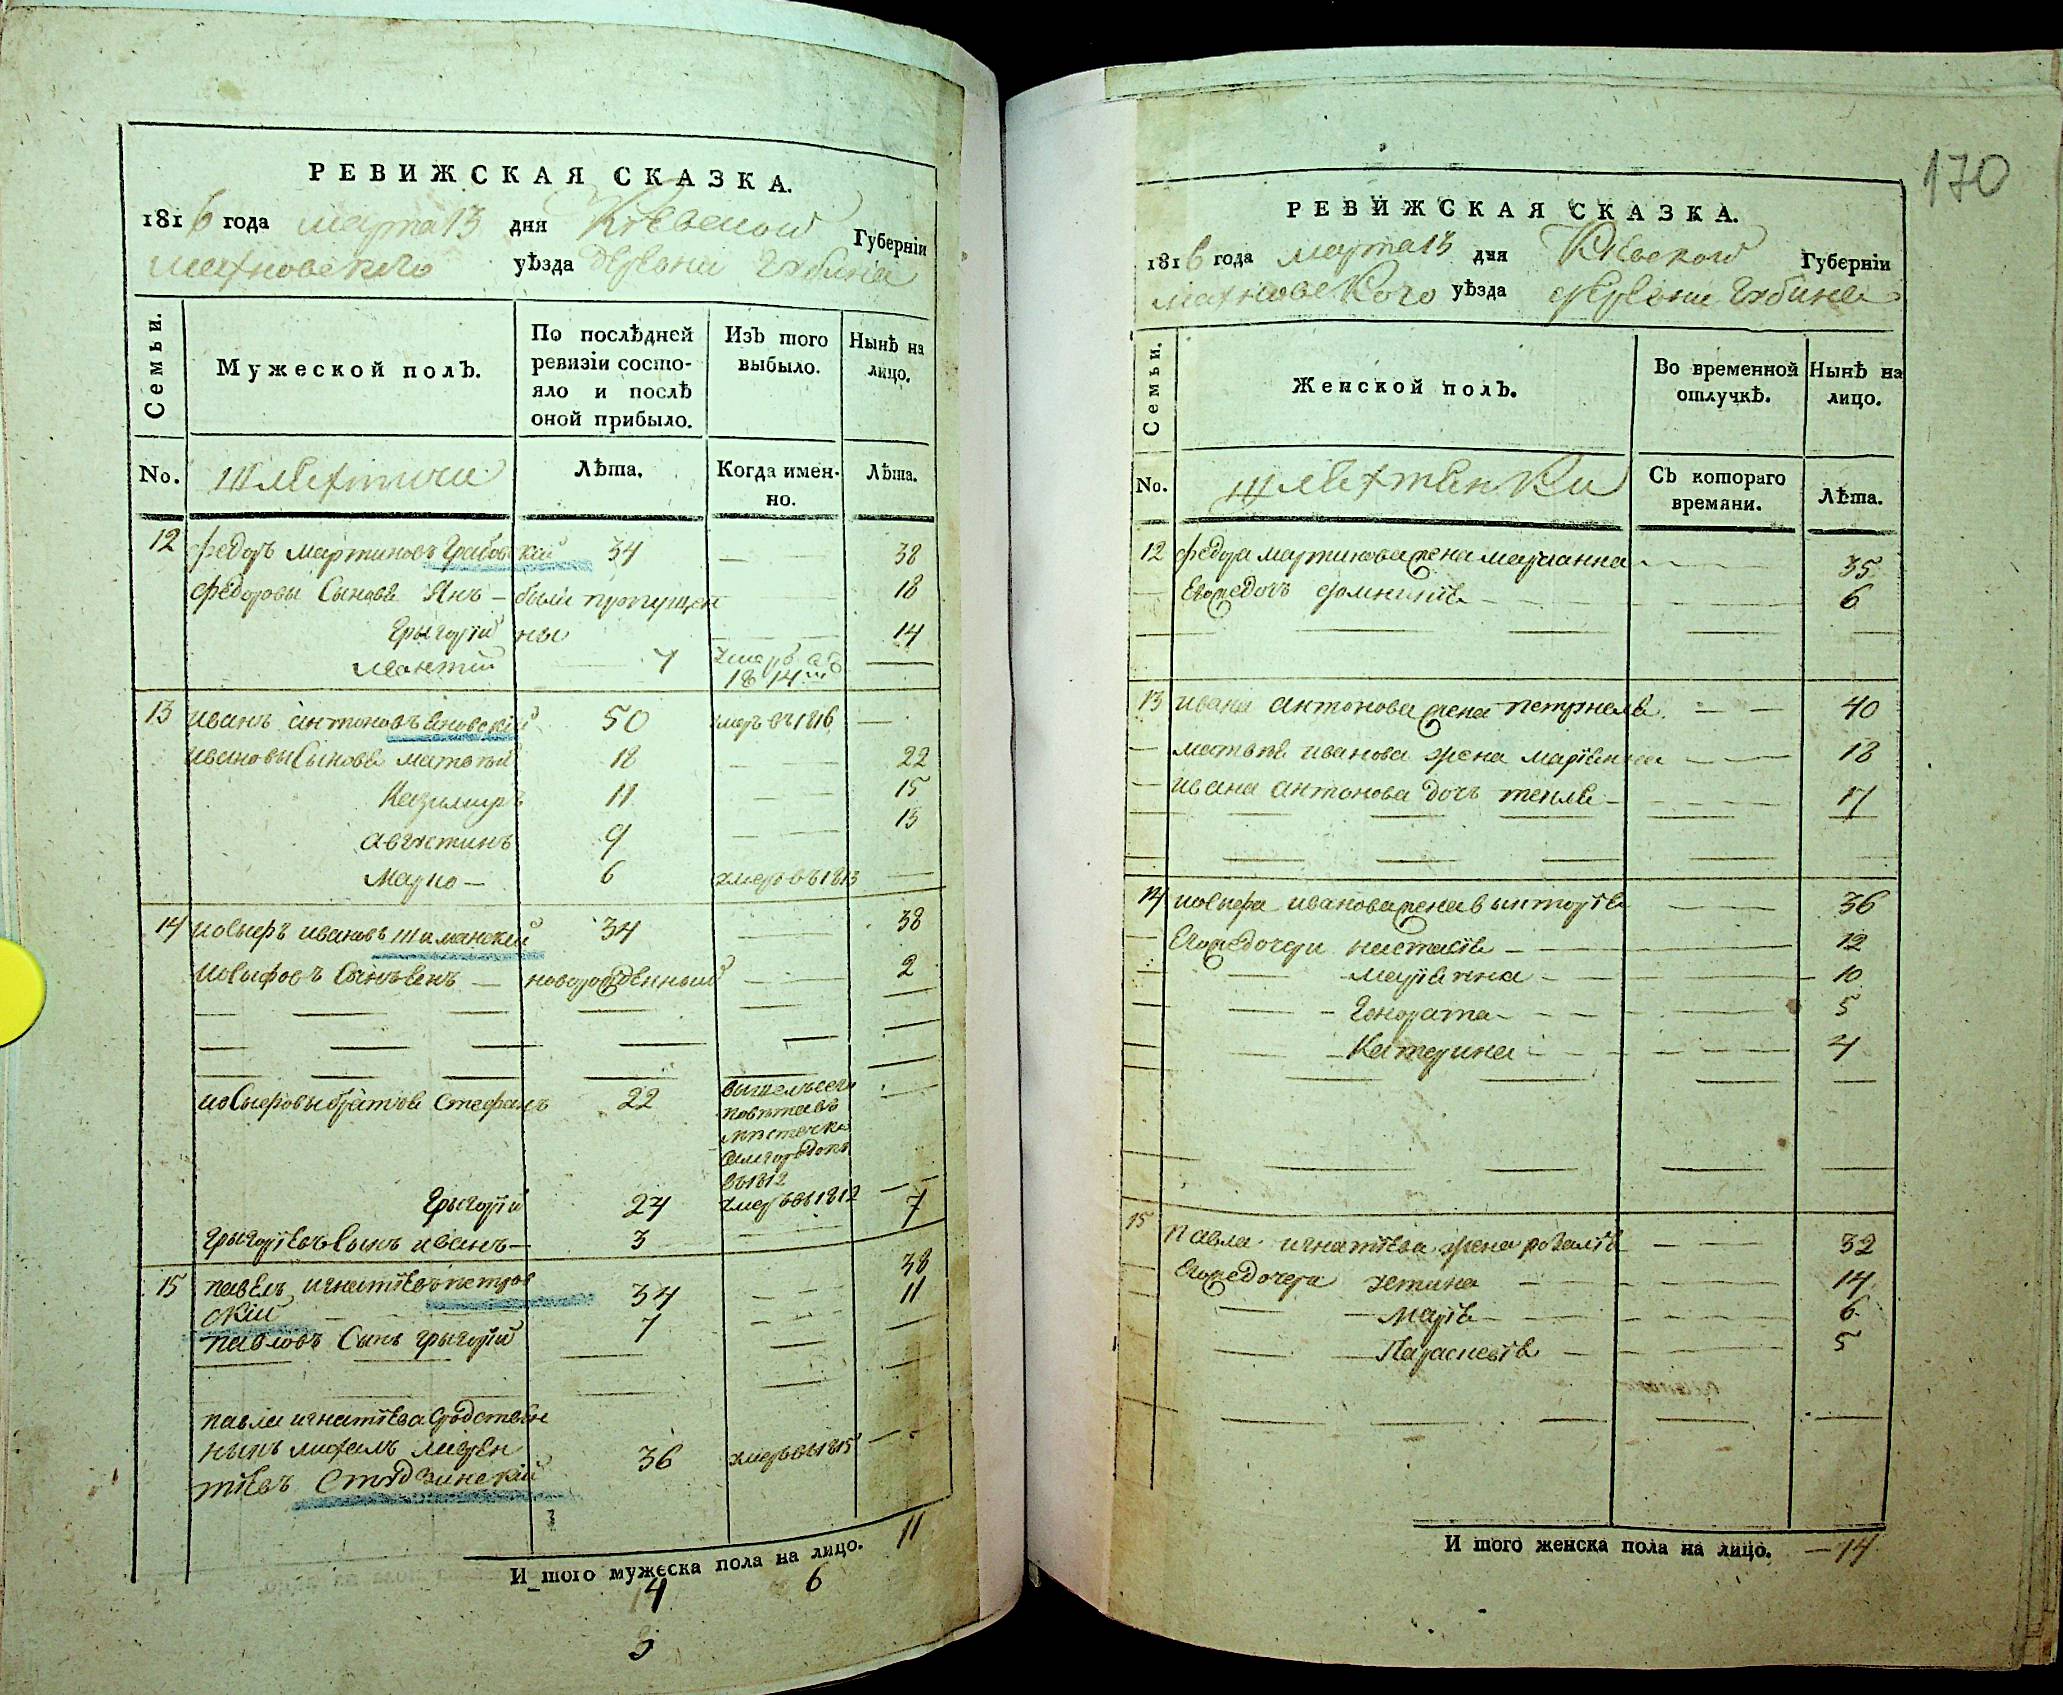 РЕВИЖСКАЯ СКАЗКА.
1816 года марта 13 дня Кіевской Губерніи
махновского уѣзда деревни Губина
Семьи.
Мужеской полъ.
По послѣдней ревизіи состо-
яло и послѣ
оной прибыло.
Изъ того
выбыло.
Нынѣ на
лицо.
No. Шляхтичи Лѣта. Когда имен-
но. Лѣта.
12 федоръ мартиновъ Грабовскій 34 — 38
федоровы Сыновя Янъ — были пропущен 18
Грыгорій ны 14
7 умеръ въ
1814м —
13 иванъ антоновъ Яновскій 50 умеръ въ 1816 —
ивановы Сыновя матвѣй 18 22
Казимиръ 11 15
августинъ 9 13
Марко — 6 умеръ въ 1813 —
14 иосыфъ ивановъ шиманскій 34 38
иосыфовъ Сынъ — новорожденный 2
иосыфовы братья Стефанъ 22 вышелъ сего
повѣта въ
мѣстечко
въ 1812
Грыгорій 24 умеръ въ 1812 —
Грыгоріевъ Сынъ иванъ — 3 7
15 павелъ игнатіевъ петров 34 38
скій
павловъ Сынъ грыгорій 7 11
павла игнатіева сродствен
никъ михалъ
Стодзинскій 36 умеръ въ 1815 —
И того мужеска пола на лицо. 11
14 6
3
170
РЕВИЖСКАЯ СКАЗКА.
1816 года марта 13 дня Кіевской Губерніи
махновского уѣзда деревни Губина
Семьи.
Женской полъ.
Во временной
отлучкѣ.
Нынѣ на
лицо.
No. шляхтянки Съ котораго
времяни. Лѣта.
12 федора мартинова жена марианна 35
Его же дочъ 6
13 ивана антонова жена петрнеля 40
матвѣя иванова жена маріянна 18
ивана антонова дочъ текля 17
14 иосыфа иванова жена выкторія 36
Его же дочери настасія — 12
маріянна — 10
Гонората 5
Катерина 4
15 павла игнатіева жена розалія 32
Его же дочера устина 14
марія 6
Параскевія 5
И того женска пола на лицо. — 14